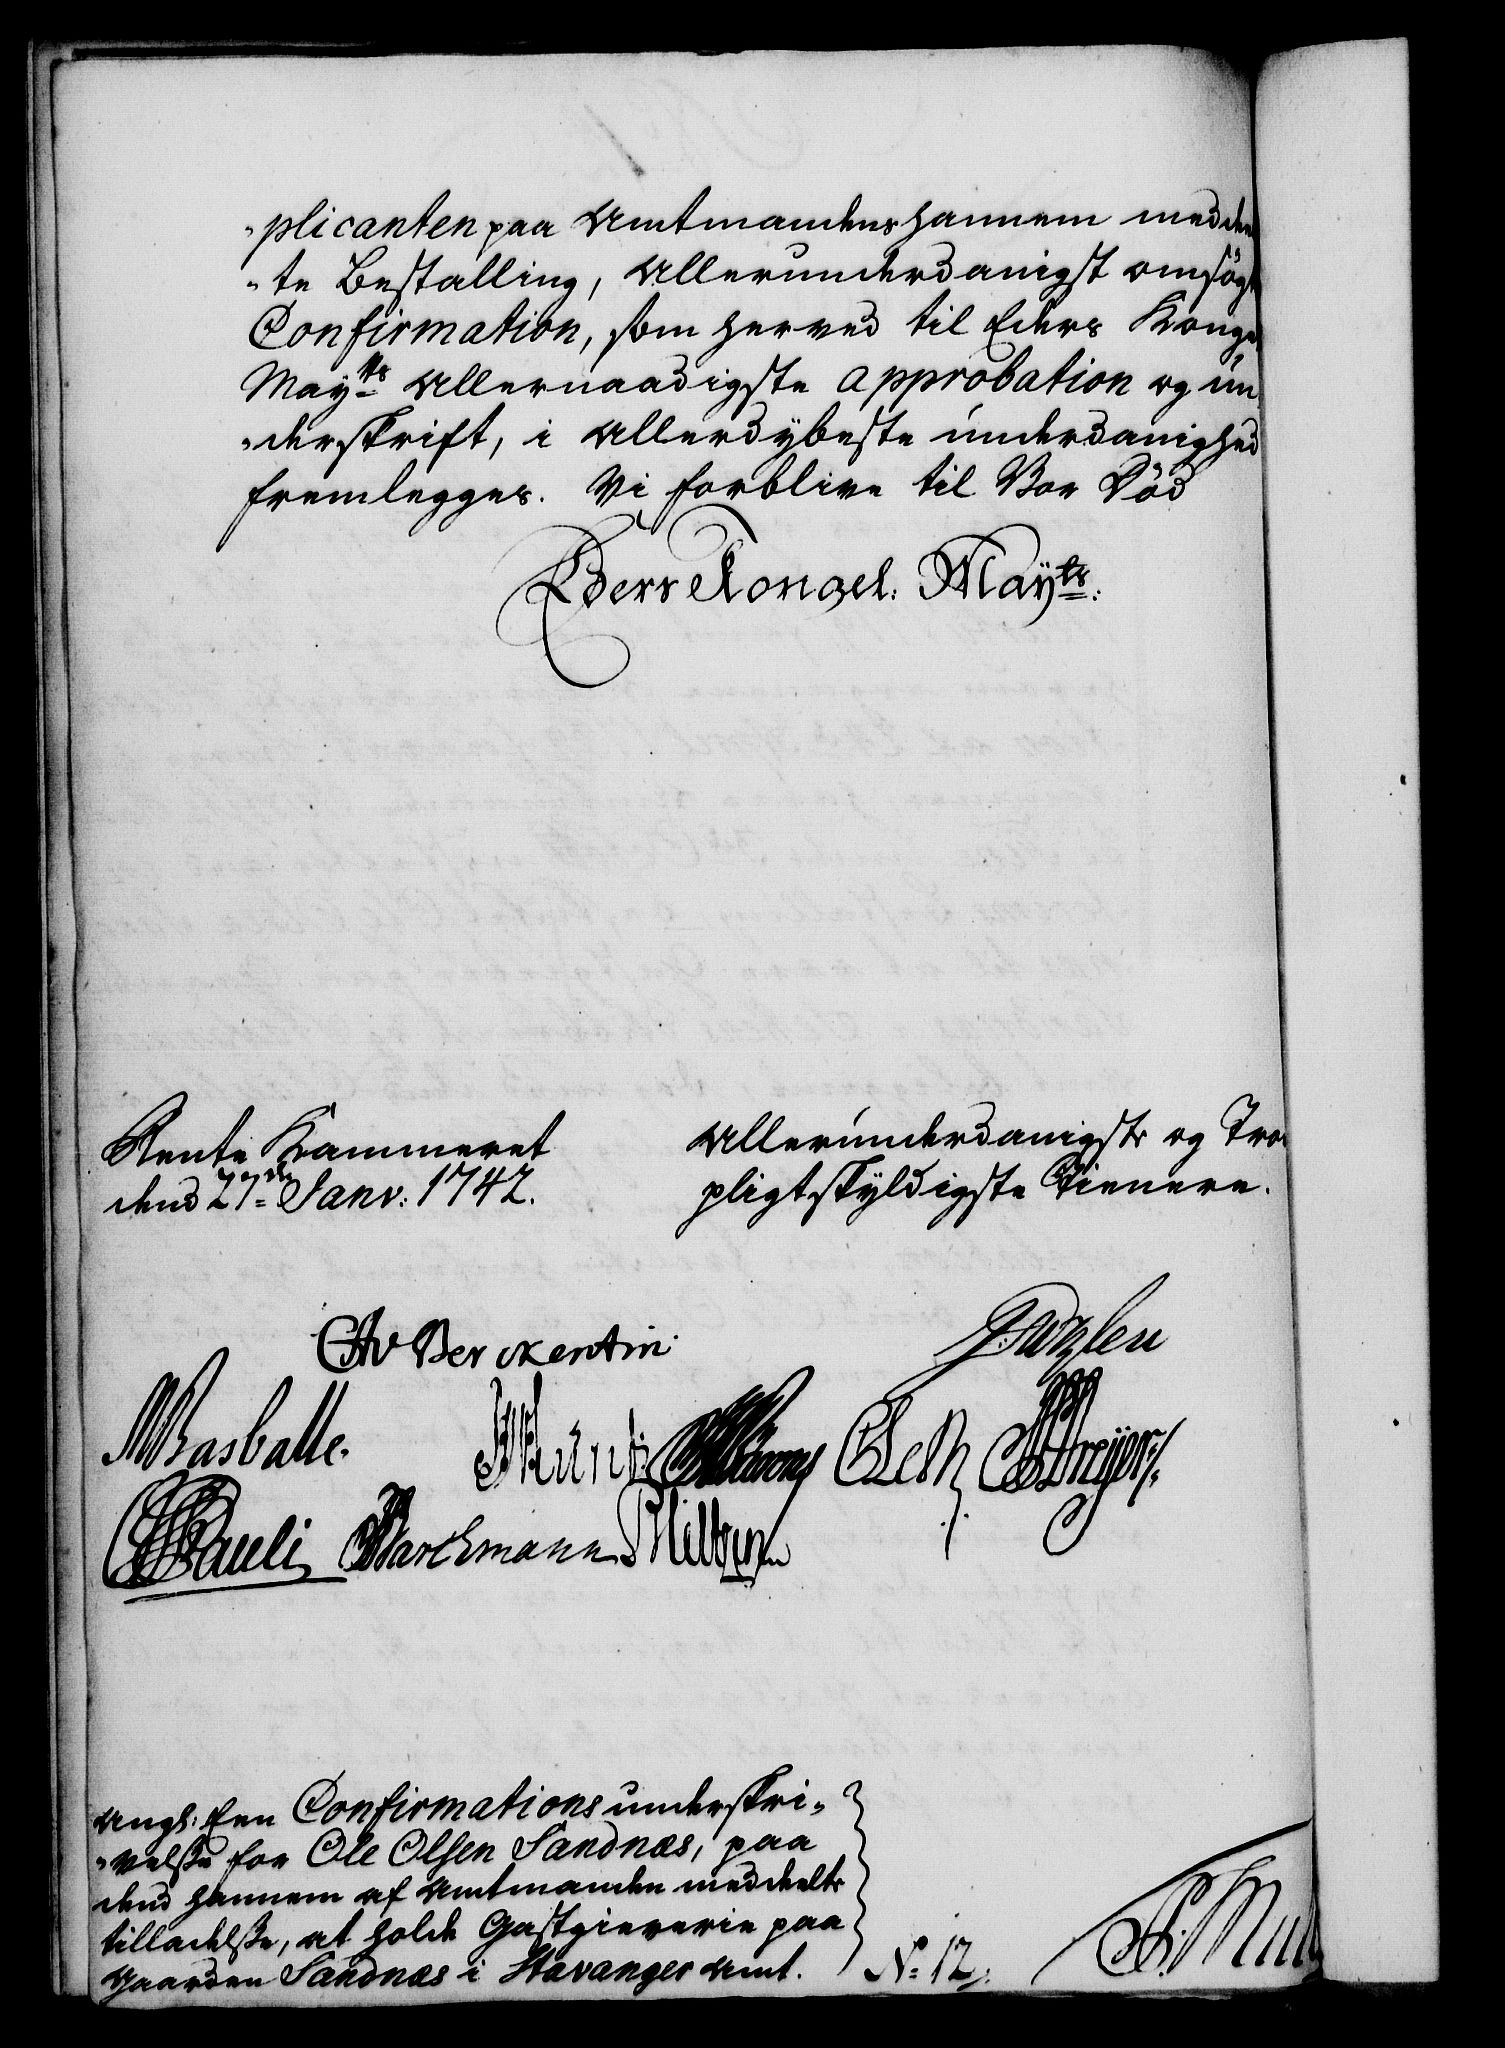 "plicanten paa Amtmandens hannem meddeel
"te Bestalling, Allerunderdanigst omsøgt
Confirmation, som herved til Eders Kongel
Mayts Allernaadigste approbation og un
"derskrift, i Allerdybeste underdanighed
fremlegges. Vi forblive til Vor Död
Eders Kongel: Mayts:
Rente Kammeret
dend 27de Janv: 1742.
Allerunderdanigste og Troe
pligtskyldigste Tienere.
CAv Berckentin.
Rasballe.
Pauli
Ang: Een Confirmations underskri"
"velsse for Ole Olsen Sandnæs, paa
dend hannem af Amtmanden meddeelte
tilladelsse, at holde Gastgieverie paa
Gaarden Sandnæs i Stavanger Amt.
No 12.